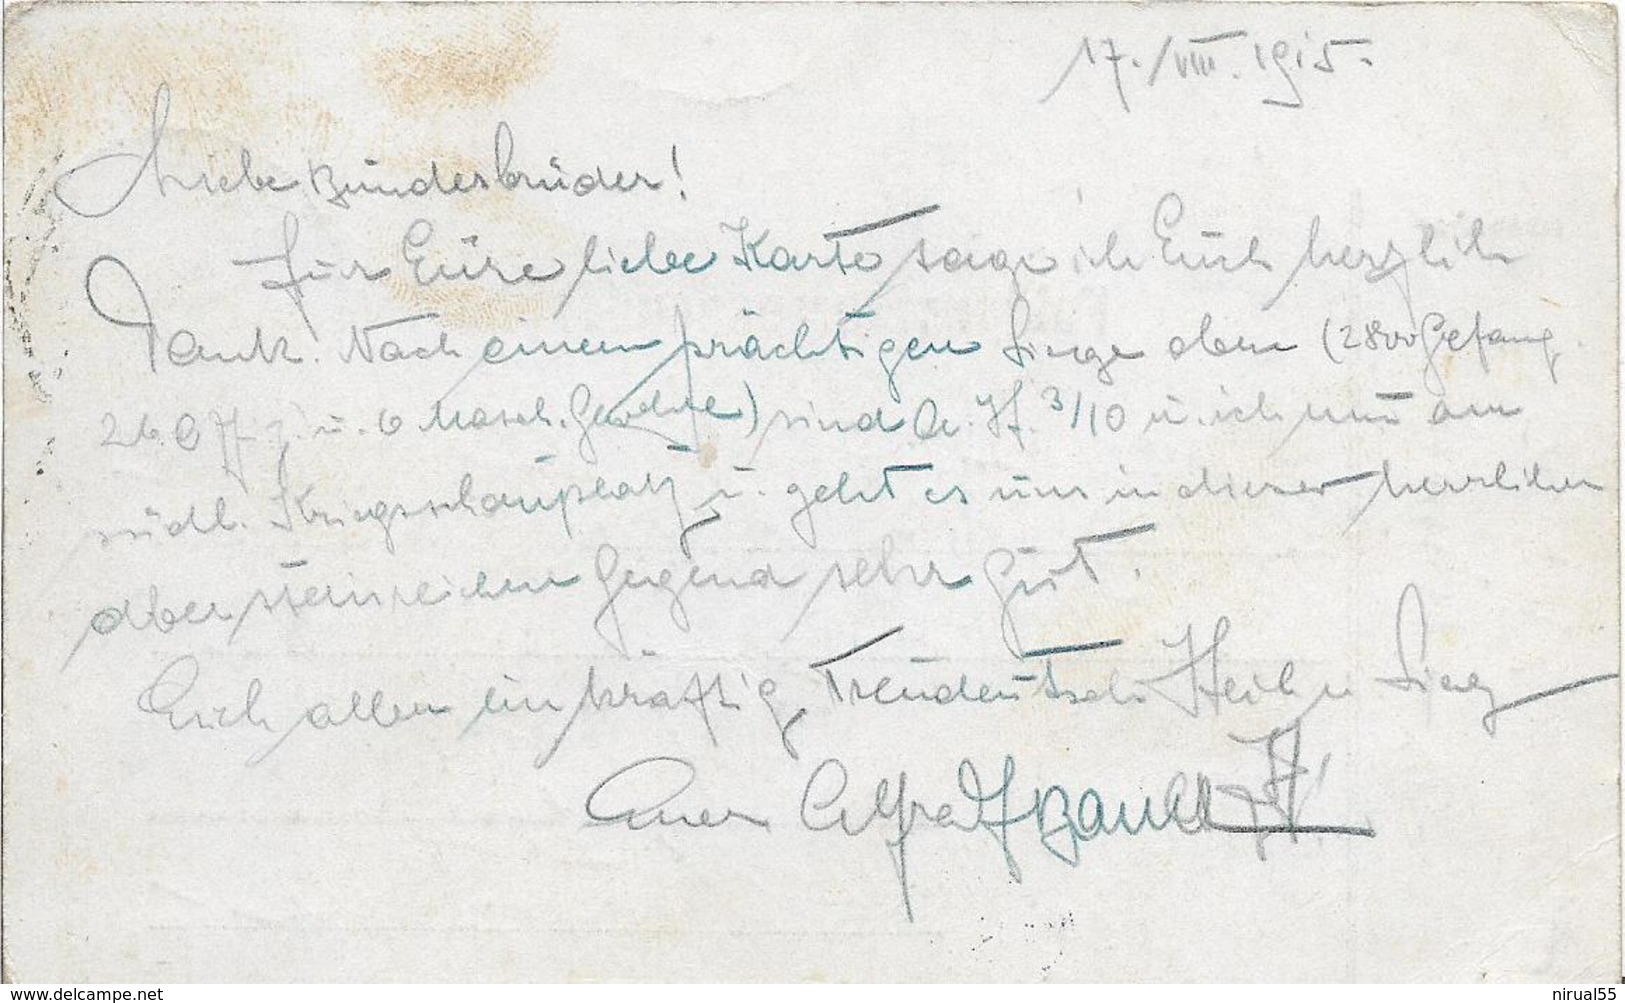 17./VIII. 1915.
Liebe Bundesbrüder!
Für Eure liebe Karte sage ich Euch herzlich
Dank! Nach einem prächtigen Siege oben (2800 Gefang.
26 Offz. u. 6 Masch. Gewehre) sind 3/10 u. ich nun am
südl. Kriegsschauplatz u. geht es uns in dieser herrlichen
aber steinreichen Gegend sehr gut.
Euch allen ein kräftig Treudeutsch Heil u Sieg
Euer Alfred
www.delcampe.net
nirual55